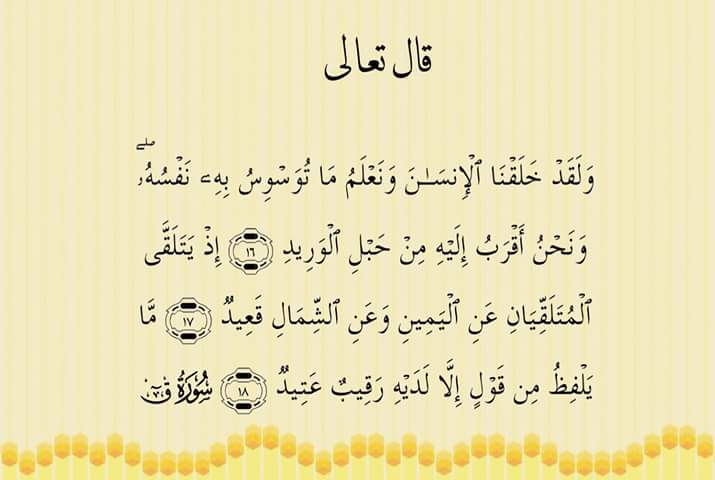 قال تعالى
وَلَقَدْ خَلَقْنَا ٱلْإِنسَـٰنَ وَنَعْلَمُ مَا تُوَسْوِسُ بِهِۦ نَفْسُهُۥ ۖ
وَنَحْنُ أَقْرَبُ إِلَيْهِ مِنْ حَبْلِ ٱلْوَرِيدِ ١٦ إِذْ يَتَلَقَّى
ٱلْمُتَلَقِّيَانِ عَنِ ٱلْيَمِينِ وَعَنِ ٱلشِّمَالِ قَعِيدٌ ١٧ مَّا
يَلْفِظُ مِن قَوْلٍ إِلَّا لَدَيْهِ رَقِيبٌ عَتِيدٌ ١٨ سُورَةُ قٓ